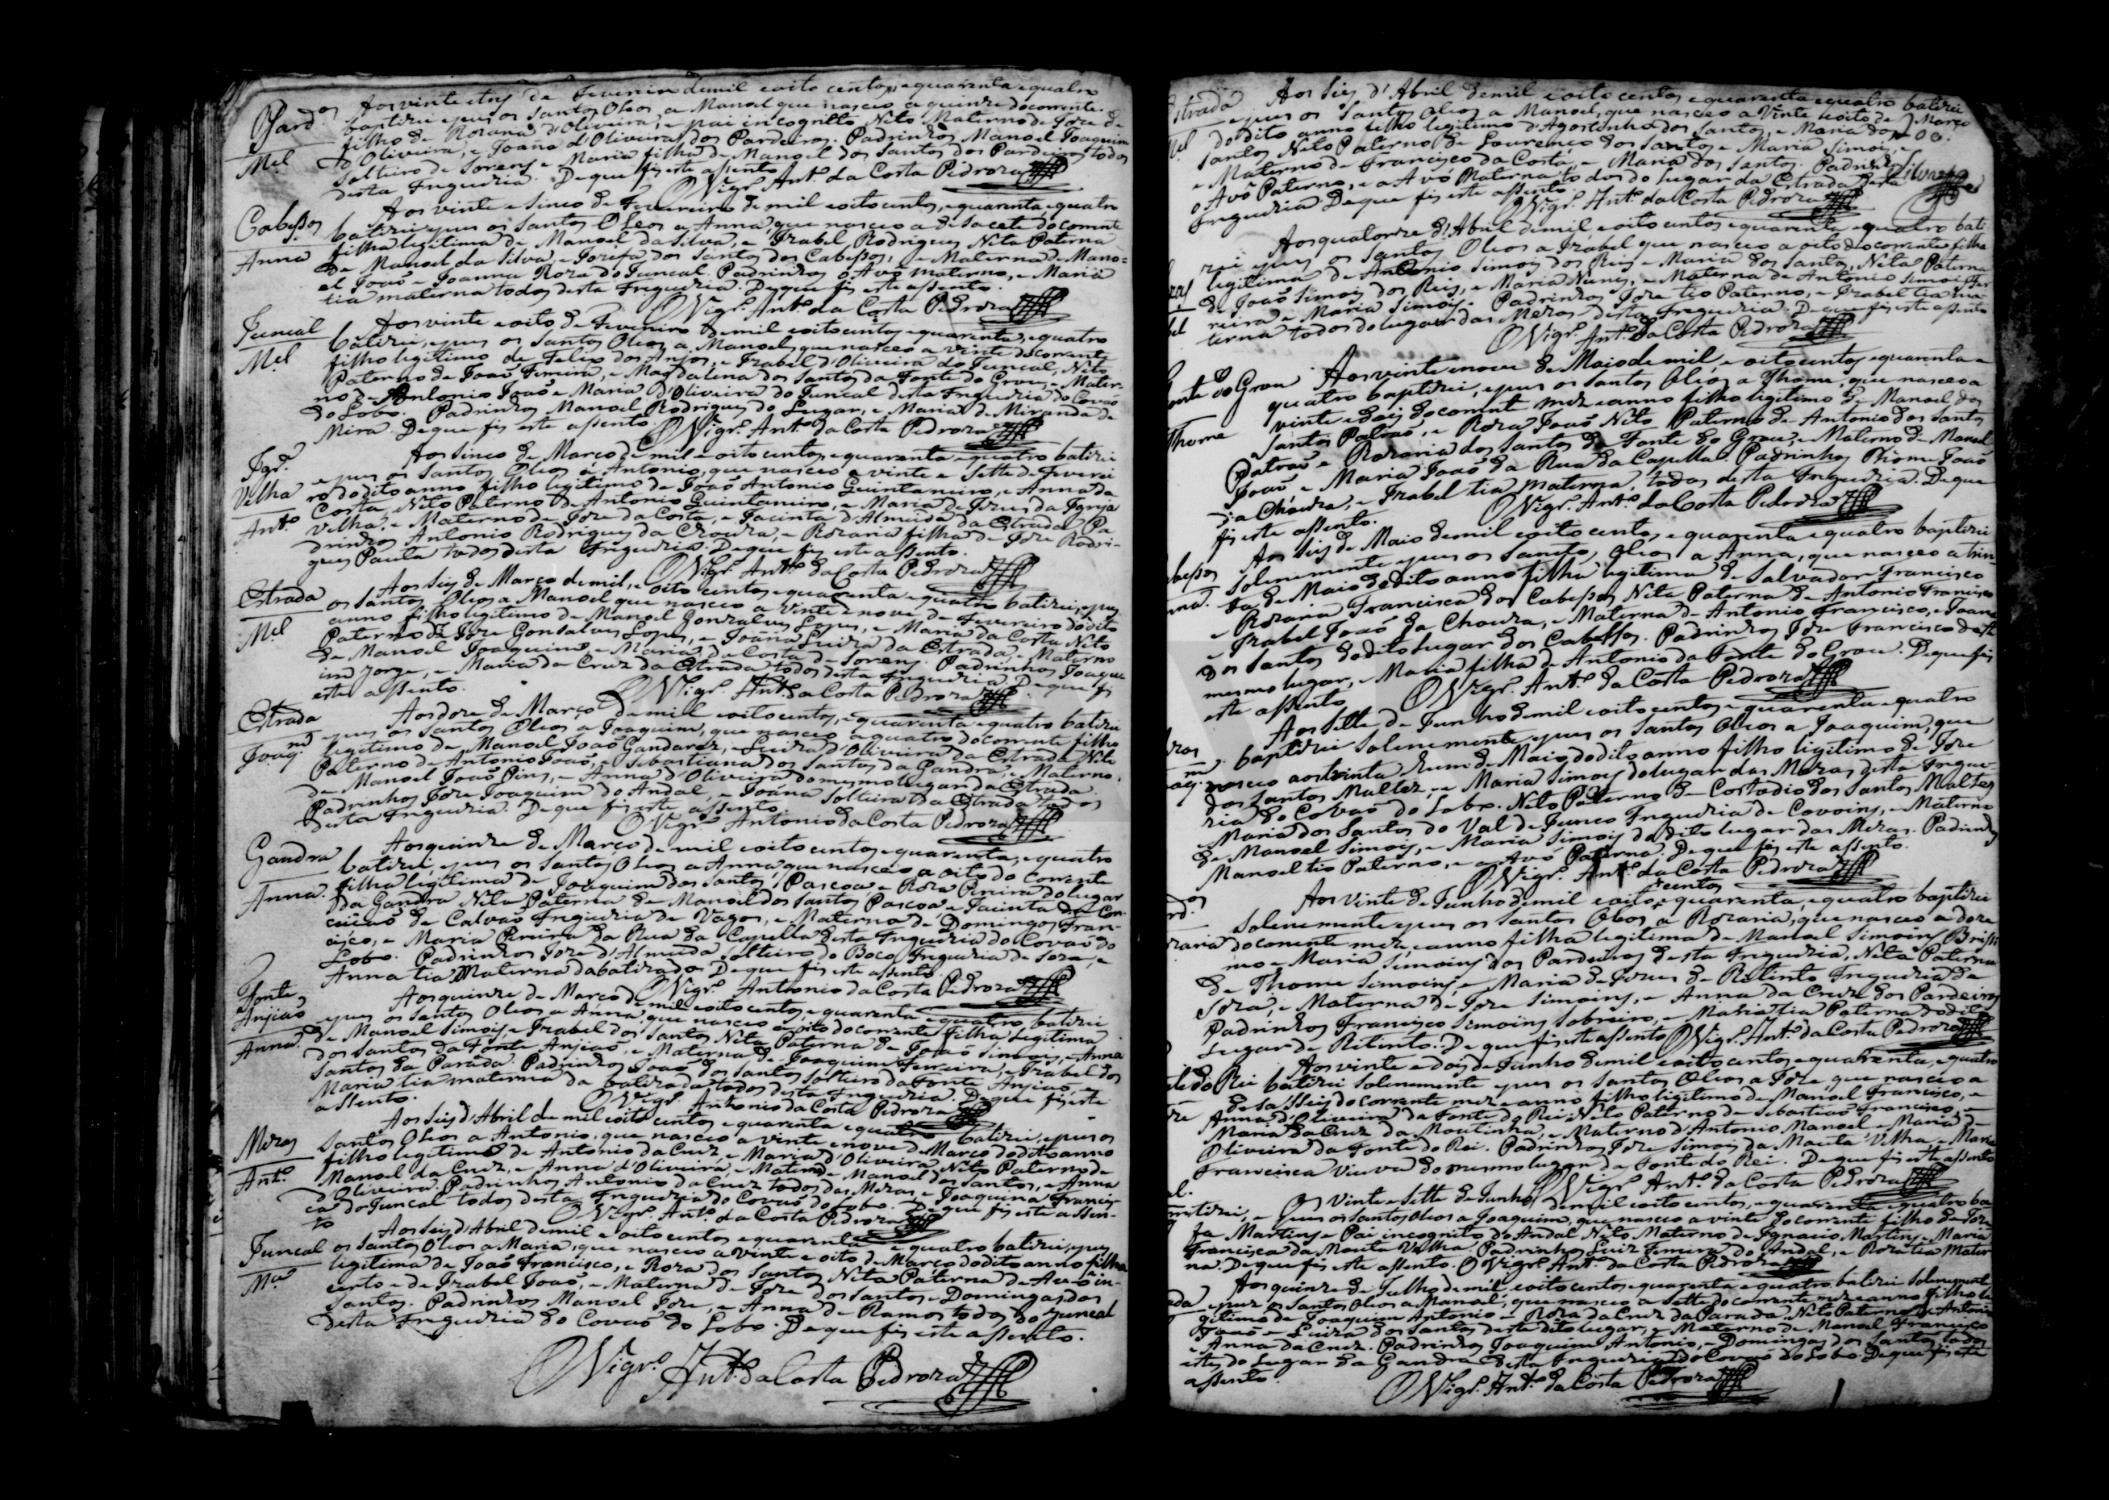 Pard.os Aos vinte e tres de Fevereiro de mil e oito centos, e quarenta e quatro
baptizei e pus os Santos Oleos a Manoel que nasceo a quinze do corrente
filho de Rozaria d'Oliveira, e pai incognitto Neto Materno de Joze
Mel d'Oliveira, e Joana d'Oliveira dos Pardeiros. Padrinhos Manoel Joaquim
Solteiro de Sorens e Maria filha de Manoel dos Santos dos Pardeiros todos
desta freguezia. De que fis este assento.
O Vigr.o Ant.o da Costa Pedroza
Cabessos Aos vinte e sinco de Fevereiro de mil e oito centos, e quarenta e quatro
batizei e pus os Santos Oleos a Anna, que nasceo a desacete do corrente
Anna filha legitima de Manoel da Silva, e Izabel Rodrigues Neta Paterna
de Manoel da Silva, e Jozefa dos Santos dos Cabessos, e Materna de Mano-
el João e Joanna Roza do Juncal. Padrinhos o Avô materno, e Maria
tia materna todos desta freguezia. De que fis este assento.
O Vigr.o Ant.o da Costa Pedroza
Juncal Aos vinte e oito de Fevereiro de mil e oito centos, e quarenta, e quatro
batizei, e pus os Santos Oleos a Manoel que nasceo a vinte do corrente
Mel filho legitimo de Felix dos Anjos, e Izabel d'Oliveira do Juncal, Neto
Paterno de João Ferreira, e Magdalena dos Santos da Fonte do Grou, e Mater-
no de Antonio João e Maria d'Oliveira do Juncal desta freguezia do Covão
do Lobo. Padrinhos Manoel Rodrigues do Lugar, e Maria de Miranda de
Mira. De que fis este assento.
O Vigr.o Ant.o da Costa Pedroza
Igr.a Aos sinco de Março de mil e oito centos, e quarenta e quatro batizei
Velha e pus os Santos Oleos a Antonio, que nasceo a vinte e sette de Feverei
ro do dito anno filho legitimo de João Antonio Quintaneiro, e Anna da
Ant.o Costa, Neto Paterno de Antonio Quintaneiro, e Maria de Jezus da Igreja
Velha, e Materno de Joze da Costa, e Jacinta d'Almeida da Estrada. Pa-
drinhos Antonio Rodrigues da Choura, e Rozaria filha de Joze Rodri-
gues Paula todos desta freguezia. De que fis este assento.
O Vigr.o Ant.o da Costa Pedroza
Estrada Aos seis de Março de mil, e oito centos, e quarenta e quatro batizei, e pus
os Santos Oleos a Manoel que nasceo a vinte e nove de Fevereiro do dito
Mel anno filho legitimo de Manoel Gonzalves Lopes, e Maria da Costa, Neto
Paterno de Joze Gonsalves Lopes, e Joana Luiza da Estrada, Materno
de Manoel Joaquim, e Maria da Costa de Sorens. Padrinhos Joaqu
im Jorge, e Maria da Cruz da Estrada todos desta freguezia. De que fis
este assento.
O Vigr.o Ant.o da Costa Pedroza
Estrada Aos doze de Março de mil e oito centos, e quarenta e quatro batizei
e pus os Santos Oleos a Joaquim, que nasceo a quatro do corrente filho
Joaq.m legitimo de Manoel João Gandarez, e Luiza d'Oliveira da Estrada Neto
Paterno de Antonio João, e Sebastiana dos Santos da Gandra, e Materno
de Manoel João Pins, e Anna d'Oliveira do mesmo lugar da Estrada.
Padrinhos Joze Joaquim do Andal, e Joana Solteira da Estrada todos
desta freguezia. De que fis este assento.
O Vigr.o Antonio da Costa Pedroza
Gandra Aos quinze de Março de mil e oito centos, e quarenta, e quatro
batizei, e pus os Santos Oleos a Anna, que nasceo a oito do corrente
Anna filha legitima de Joaquim dos Santos Pascoa e Roza Pereira do lugar
da Gandra Neta Paterna de Manoel dos Santos Pascoa e Jacinta da Con-
ceição de Calvão freguezia de Vagos, e Materna de Domingos Fran-
cisco, e Maria Pereira da Rua da Capella desta freguezia do Covão do
Lobo. Padrinhos Joze d'Almeida Solteiro do Boco freguezia de Soza, e
Anna tia Materna da batizada. De que fis este assento.
O Vigr.o Antonio da Costa Pedroza
Fonte Aos quinze de Março de mil e oito centos, e quarenta e quatro batizei
Anjião e pus os Santos Oleos a Anna que nasceo a oito do corrente filha legitima
Anna de Manoel Simois, e Izabel dos Santos Neta Paterna de João Simois, e Anna
dos Santos da Fonte Anjião, e Materna de Joaquim Ferreira, e Izabel dos
Santos da Parada. Padrinhos João dos Santos solteiro da Fonte Anjião, e
Maria tia materna da batizada todos desta freguezia. De que fis este
assento.
O Vigr.o Antonio da Costa Pedroza
Aos seis d'Abril de mil e oito centos e quarenta e quatro batizei, e pus os
Mezas Santos Oleos a Antonio, que nasceo a vinte e nove de Março do dito anno
filho legitimo de Antonio da Cruz, e Maria d'Oliveira Neto Paterno de
Ant.o Manoel da Cruz, e Anna d'Oliveira, e Materno de Manoel dos Santos, e Anna
d'Oliveira. Padrinhos Antonio da Cruz todos das Mezas, e Joaquina Francis-
ca do Juncal todos desta freguezia do Covão do Lobo. De que fis este assen-
to O Vigr.o Ant.o da Costa Pedroza
Aos seis d'Abril de mil e oito centos e quarenta e quatro batizei, e pus
Juncal os Santos Oleos a Maria, que nasceo a vinte e oito de Março do dito anno filha
legitima de João Francisco, e Roza dos Santos Neta Paterna de
M.a e de Izabel João, e Materna de Joze dos Santos e Domingas dos
Santos. Padrinhos Manoel Joze, e Anna de Ramos todos do Juncal
desta freguezia do Covão do Lobo. De que fis este assento.
O Vigr.o Ant.o da Costa Pedroza
Estrada Aos seis d'Abril de mil e oito centos e quarenta e quatro batizei
e pus os Santos Oleos a Manoel, que nasceo a vinte e oito de Março
do dito anno filho legitimo d'Agostinho dos Santos, e Maria dos
Santos Neto Paterno de Lourenço dos Santos e Maria Simois, e
e Materno de Francisco da Costa, e Maria dos Santos. Padrinhos
o Avô Paterno, e a Avó Materna todos do lugar da Estrada desta
freguezia. De que fis este assento.
O Vigr.o Ant.o da Costa Pedroza
Aos quatorze d'Abril de mil e oito centos e quarenta e quatro bati-
zei e pus os Santos Oleos a Izabel que nasceo a oito do corrente filha
legitima de Antonio Simois dos Reis e Maria dos Santos, Neta Paterna
de João Simois dos Reis, e Maria Nunes, e Materna de Antonio Simois Fer
reira e Maria Simois. Padrinhos Joze tio Paterno, e Izabel tia ma-
terna todos do lugar das Mezas desta freguezia. De que fis este assento
O Vigr.o Ant.o da Costa Pedroza
Fonte do Grou Aos vinte e nove de Maio de mil, e oito centos, e quarenta e
quatro baptizei, e pus os Santos Oleos a Thome, que nasceo a
Thome vinte e dois do corrente mez e anno filho legitimo de Manoel dos
Santos Patrão, e Roza João Neto Paterno de Antonio dos Santos
Patrão e Rozaria dos Santos da Fonte do Grou, e Materno de Manoel
João e Maria João da Rua da Capella. Padrinhos Thome João
da Choura, e Izabel tia materna, todos desta freguezia. De que
fis este assento.
O Vigr.o Ant.o da Costa Pedroza
Aos seis de Maio de mil e oito centos, e quarenta e quatro baptizei
solenemente e pus os Santos Oleos a Anna, que nasceo a trin-
ta de Maio do dito anno filha legitima de Salvador Francisco
e Rozaria Francisca dos Cabessos Neta Paterna de Antonio Francisco
e Izabel João da Choura, e Materna de Antonio Francisco, e Joana
dos Santos do dito lugar dos Cabessos. Padrinhos Joze Francisco deste
mesmo lugar, e Maria filha de Antonio da Fonte do Grou. De que fis
este assento.
O Vigr.o Ant.o da Costa Pedroza
Aos sette de Junho de mil e oito centos e quarenta e quatro
baptizei solenemente e pus os Santos Oleos a Joaquim, que
nasceo aos trinta e hum de Maio do dito anno filho legitimo de Joze
dos Santos Maltez, e Maria Simois do lugar das Mezas desta fregue-
ria do Covão do Lobo. Neto Paterno de Costodio dos Santos Maltez
Maria dos Santos do Val de Junco freguezia de Covoins, e Materno
de Manoel Simois, e Maria Simois do dito lugar das Mezas. Padrinhos
Manoel tio Paterno, e a Avó Paterna. De que fis este assento.
O Vigr.o Ant.o da Costa Pedroza
centos
Aos vinte de Junho de mil e oito, e quarenta, e quatro baptizei
solenemente e pus os Santos Oleos a Rozaria, que nasceo a doze
do corrente mez e anno filha legitima de Manoel Simoins
mo e Maria Simoins dos Pardeiros desta freguezia, Neta Paterna
de Thome Simoins, e Maria de Jezus de Ritinto freguezia de
Soza, e Materna de Joze Simoins, e Anna da Cruz dos Pardeiros
Padrinhos Francisco Simoins Sobreiro, e Maria tia Paterna do dito
Lugar de Ritinto. De que fis este assento. O Vigr.o Ant.o da Costa Pedroza
Aos vinte e dois de Junho de mil e oito centos, e quarenta, e quatro
Fonte do Rei batizei solenemente e pus os Santos Oleos a Joze, que nasceo a
desasseis do corrente mez e anno filho legitimo de Manoel Francisco, e
Anna d'Oliveira da Fonte do Rei Neto Paterno de Sebastião Francisco, e
Maria da Cruz da Moutinha, e Materno d'Antonio Manoel e Maria d-
Oliveira da Fonte do Rei. Padrinhos Joze Simois da Mouta Velha, e Maria
Francisca Viuva do mesmo lugar da Fonte do Rei. De que fis este assento
O Vigr.o Ant.o da Costa Pedroza
Os vinte e sette de Junho de mil e oito centos, e quarenta e quatro ba-
ptizei, e pus os Santos Oleos a Joaquim, que nasceo a vinte do corrente filho de Joze
fa Martins e Pai incognito do Andal Neto Materno de Ignacio Martins, e Maria
Francisca da Mouta Velha. Padrinhos Luiz Ferreira do Andal, e Roza tia Mater
na. De que fis este assento. O Vigr.o Ant.o da Costa Pedroza
Aos quinze de Julho de mil e oito centos e quarenta e quatro batizei solenement
e pus os Santos Oleos a Manoel, que nasceo a sette do corrente mez e anno filho le
gitimo de Joaquim Antonio e Roza da Cruz da Parada Neto Paterno de Antonio
João e Luiza dos Santos deste dito lugar, e Materno de Manoel Francisco
e Anna da Cruz. Padrinhos Joaquim Antonio, e Domingas dos Santos todos
estes do Lugar da Gandra desta freguezia do Covão do Lobo. De que fis este
assento.
O Vigr.o Ant.o da Costa Pedroza